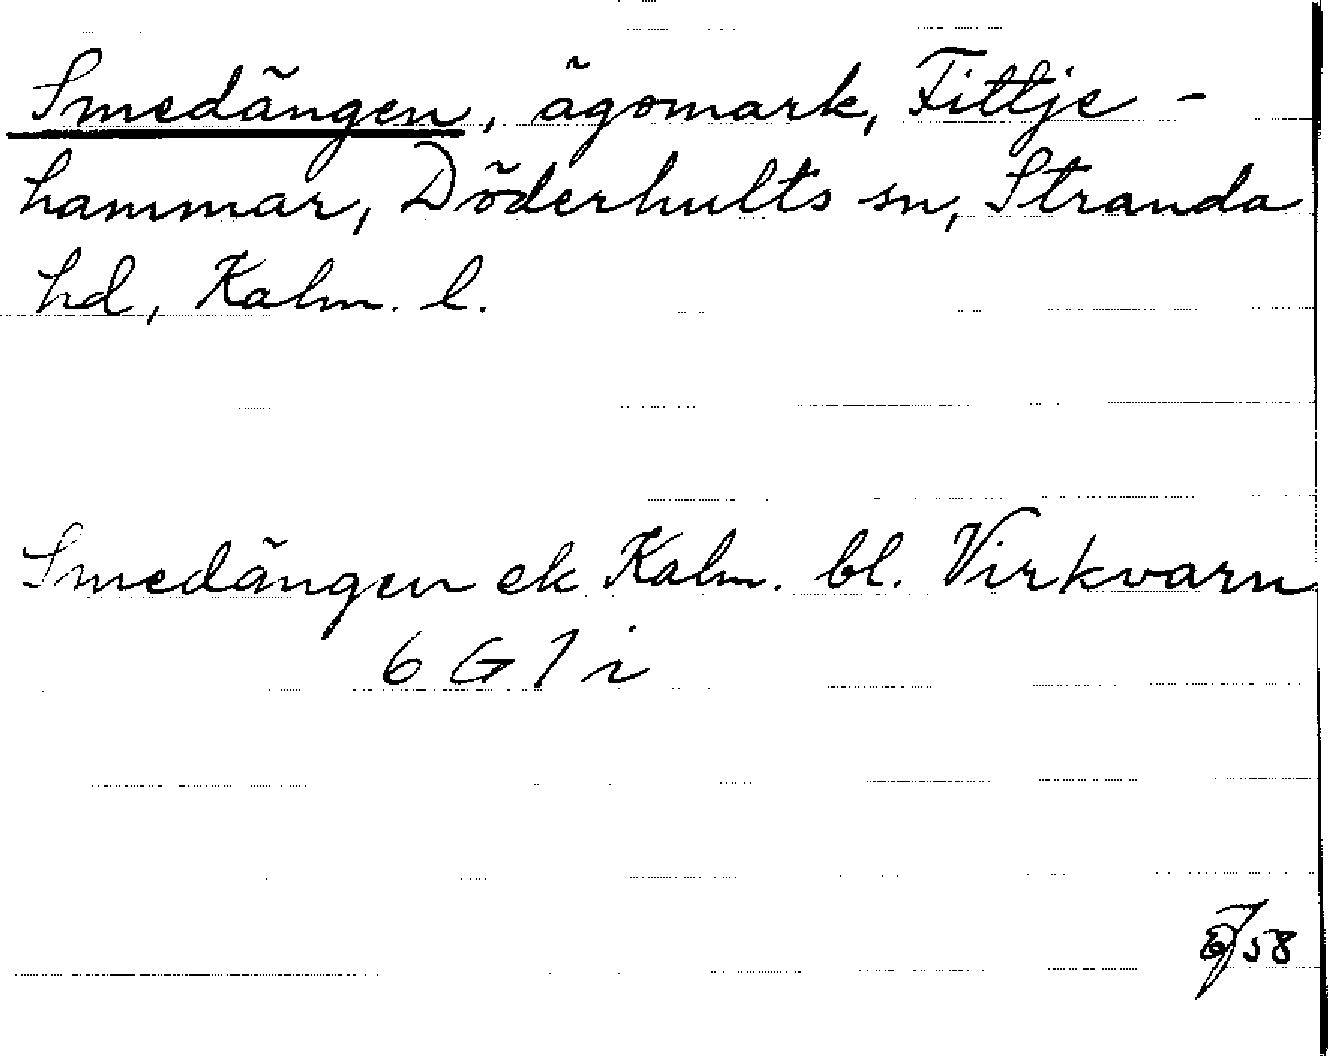 Smedängen, ägomark, Fittje-
hammar, Döderhults sn, Stranda
hd, Kalm. l.
Smedängen ek Kalm. bl. Virkvarn
6 G 1 i
58